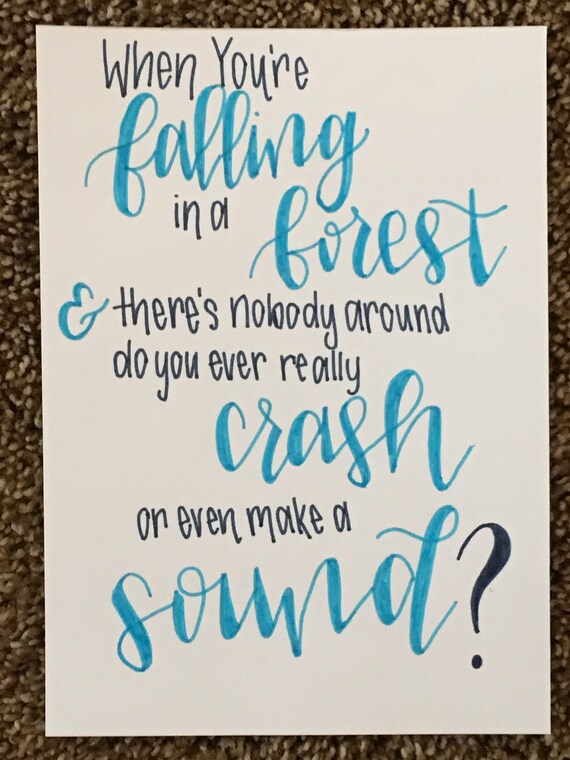 When You're
falling
in a
forest
& there's nobody around
do you ever really
crash
or even make a
sound?